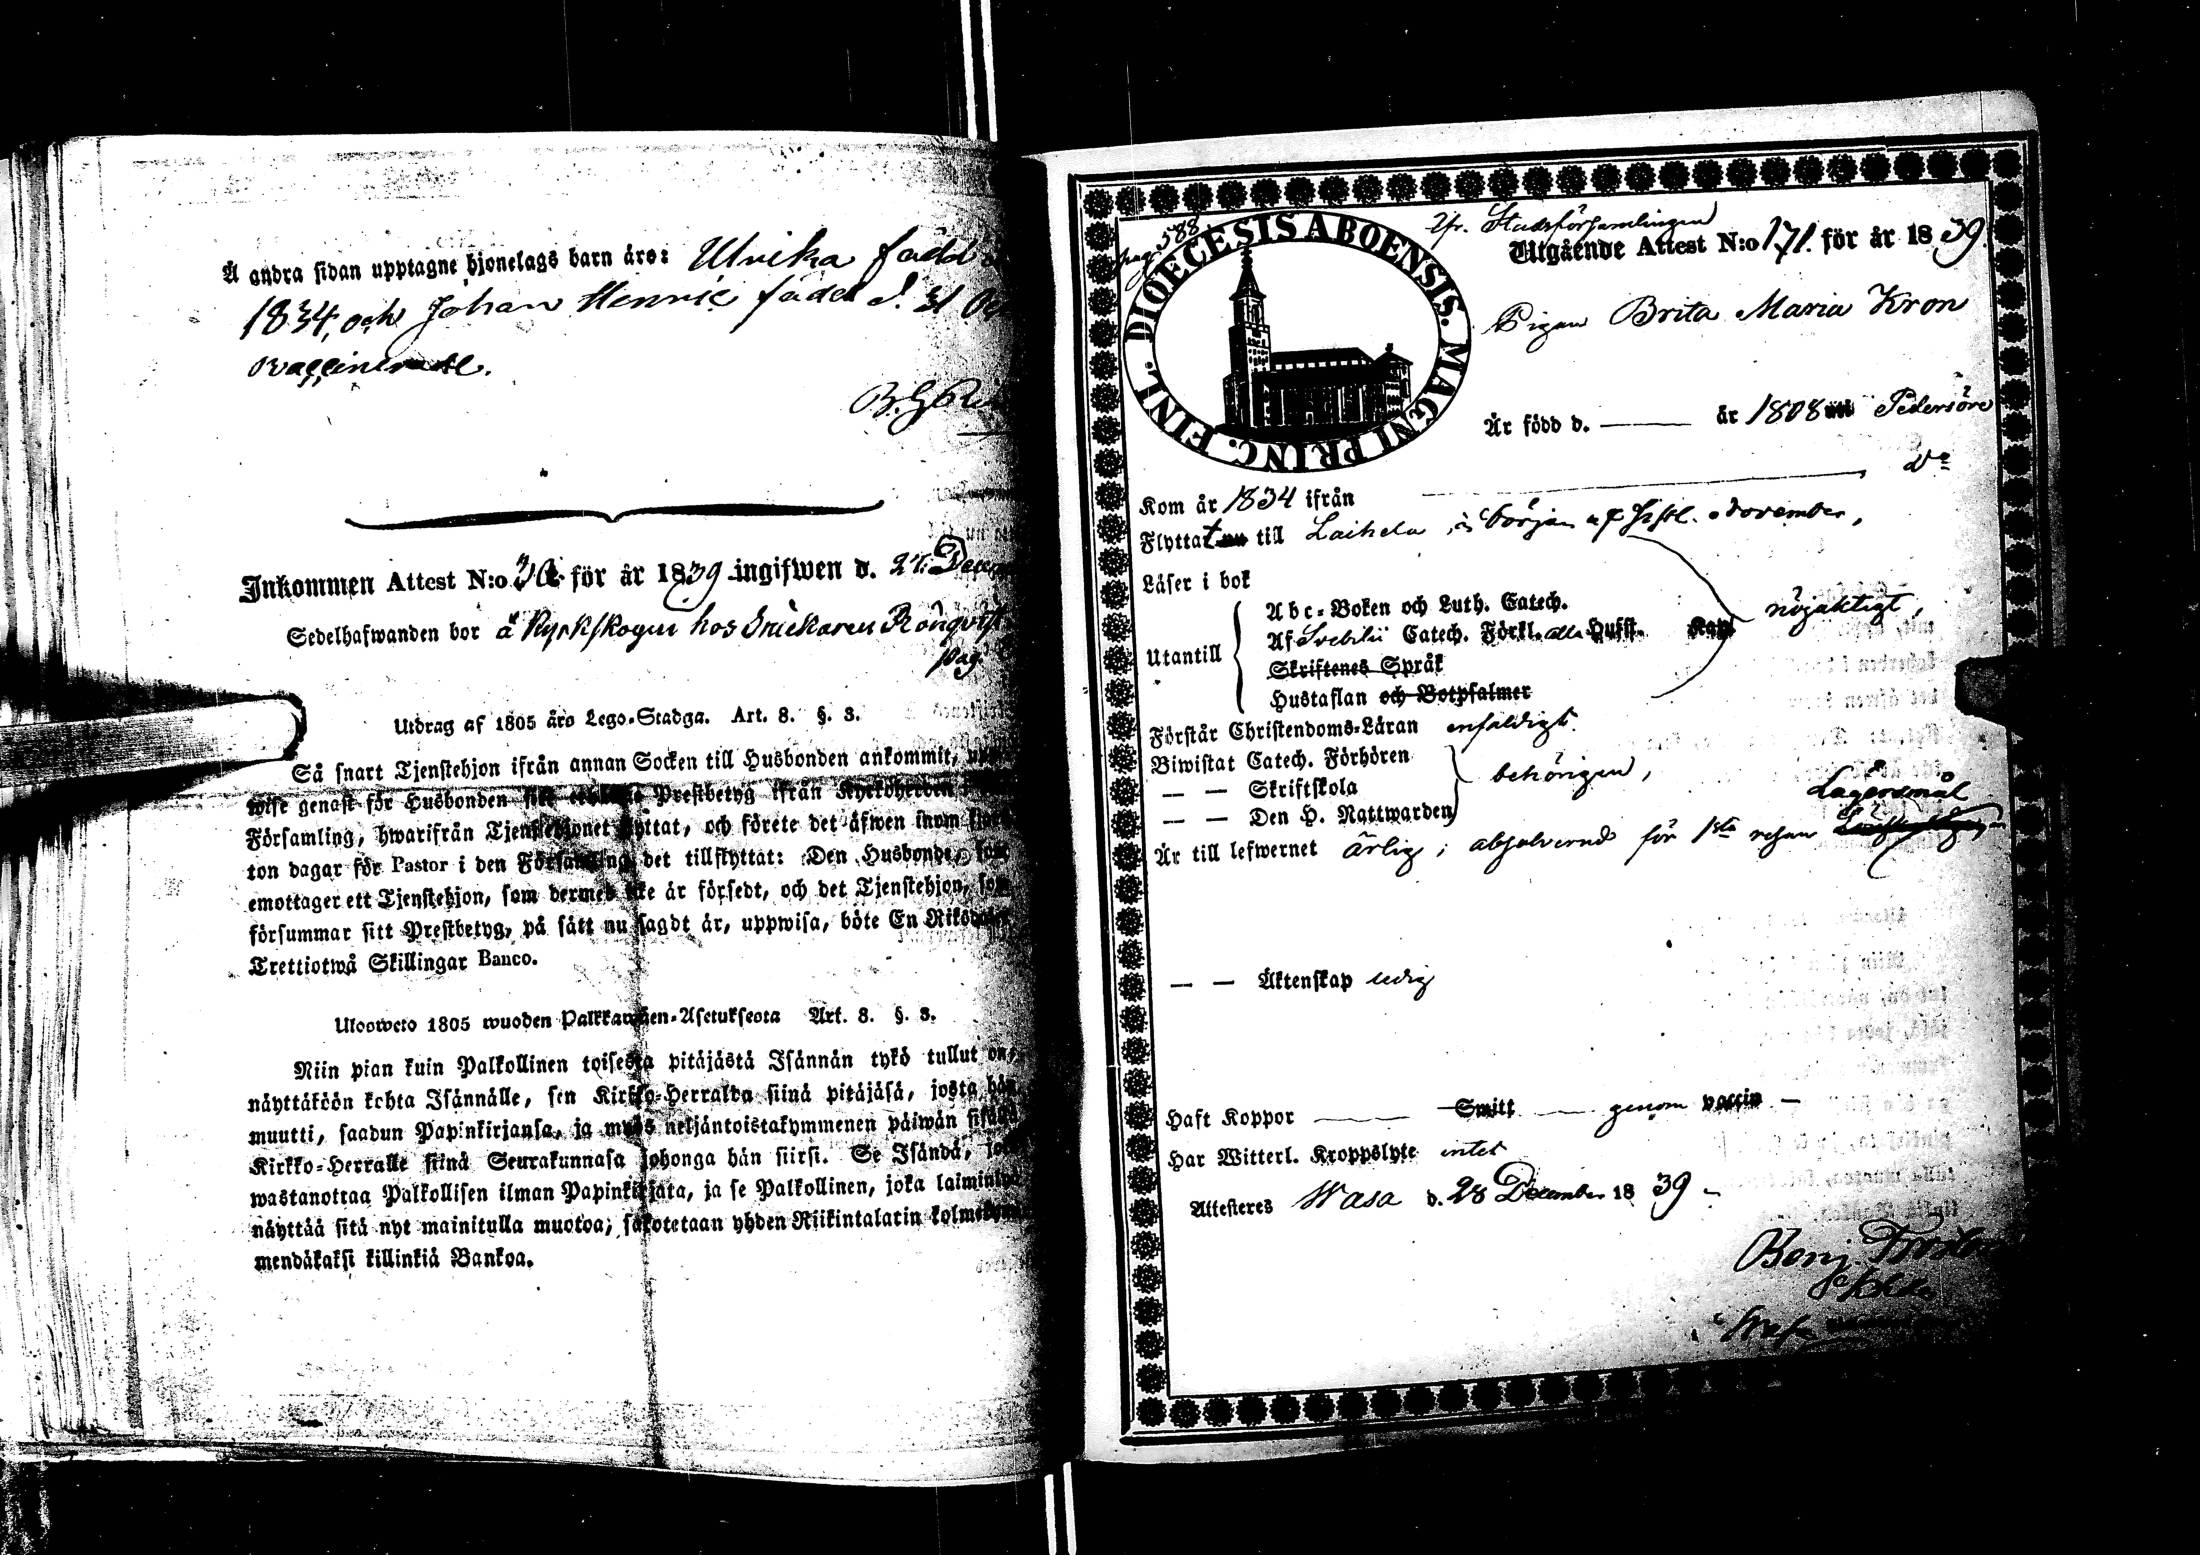 Å andra sidan upptagne hjonelags barn äro: Ulrika född
1834, och Johan Henric född d. 31
vaccinerade.
Inkommen Attest N:o för år 1839 ingifwen d. 27.
Sedelhafwanden bor å Kyrkskogen hos Rönqvist
pag.
Utdrag af 1805 års Lego-Stadga. Art. 8. §. 3.
Så snart Tjenstehjon ifrån annan Socken till Husbonden ankommit,
wise genast för Husbonden sitt Prestbetyg ifrån Kyrkoherden
Församling, hwarifrån Tjenstehjonet flyttat, och förete det äfwen inom
ton dagar för Pastor i den Församling det tillflyttat: Den Husbonde, som
emottager ett Tjenstehjon, som dermed icke är försedt, och det Tjenstehjon, som
försummar sitt Prestbetyg, på sätt nu sagdt är, uppwisa, böte En Riksdaler
Trettiotwå Skillingar Banco.
Ulosweto 1805 wuoden Palkkawäen-Asetuksesta Art. 8. §. 3.
Niin pian kuin Palkollinen toisesta pitäjästä Isännän tykö tullut on,
näyttäköön kohta Isännälle, sen Kirkko-Herralda siinä pitäjäsä, josta hän
muutti, saadun Papinkirjansa, ja myös neljäntoistakymmenen päiwän sisällä
Kirkko-Herralle siinä Seurakunnasa johonga hän siirsi. Se Isändä, joka
wastanottaa Palkollisen ilman Papinkirjata, ja se Palkollinen, joka laiminlyö
näyttää sitä nyt mainitulla muotoa, sakotetaan yhden Riikintalarin kolmekym-
mendäkaksi killinkiä Bankoa.
pag. 588
DIOECESIS ABOENSIS. MAGNI PRINC. FINL.
Ifr. Stadsförsamlingen
Utgående Attest N:o 171. för år 1839
Pigan Brita Maria Kron
Är född d. — år 1808 Pedersöre
Kom år 1834 ifrån — do
Flyttat nu till Laihela, i början af sistl. November,
Läser i bok
Utantill
Abc-Boken och Luth. Catech.
Af Svebilii Catech. Förkl. alla Hufst. Kap.
nöjaktigt,
Skriftenes Språk
Hustaflan och Botpsalmer
Förstår Christendoms-Läran enfaldigt.
Biwistat Catech. Förhören
— — Skriftskola
behörigen,
— — Den H. Nattwarden
Lägersmål
Är till lefwernet ärlig; absolverad för 1sta resan
— — Äktenskap ledig
Haft Koppor — Smitt — genom vaccin —
Har Witterl. Kroppslyte intet
Attesteres Wasa d. 28 December 1839
Benj.